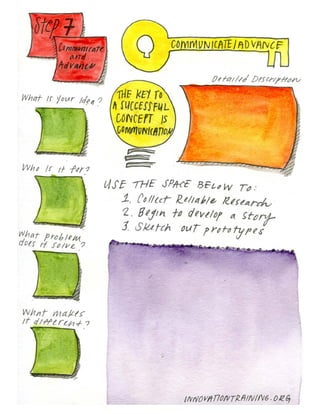 Step 7
Communicate
and
Advance
COMMUNICATE/ADVANCE
Detailed Description
What is your idea?
THE KEY TO
A SUCCESSFUL
CONCEPT IS
COMMUNICATION
Who is it for?
USE THE SPACE BELOW TO:
1. Collect Reliable Research
2. Begin to develop a Story
3. Sketch out prototypes
What problem
does it solve?
What makes
it different?
INNOVATIONTRAINING.ORG